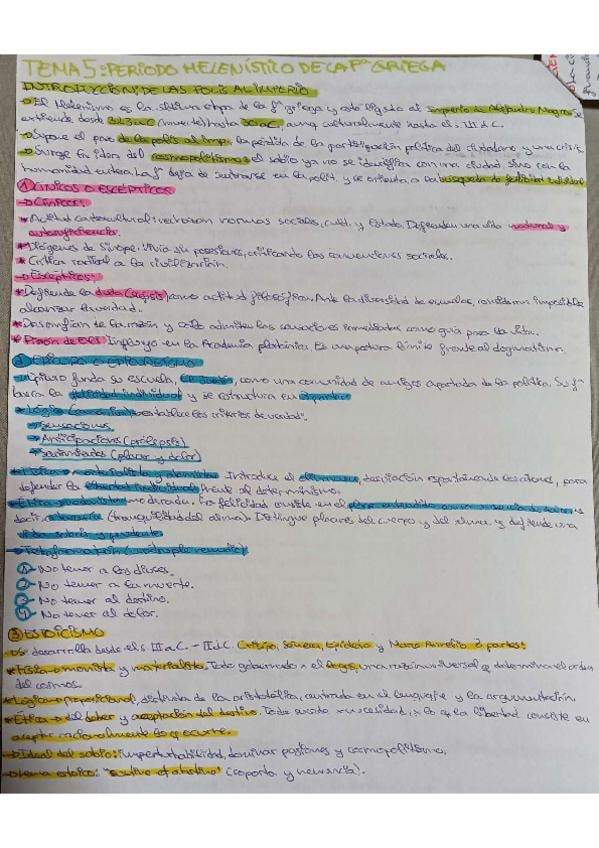 TEMA 5: PERIODO HELENÍSTICO DE LA Fª GRIEGA
INTRODUCCIÓN: DE LAS POLIS AL IMPERIO
→ El Helenismo es la última etapa de la fª griega y está ligada al imperio de Alejandro Magno. Se
extiende desde 323 a.C (muerte) hasta 30 a.C, aunq culturalmente hasta el s. III d.C.
→ Supone el paso de la polis al imp, la pérdida de la participación política del ciudadano y una crisis
→ Surge la idea del cosmopolitismo: el sabio ya no se identifica con una ciudad sino con la
humanidad entera. La fª deja de centrarse en la polít. y se orienta a la búsqueda de felicidad individual
① CÍNICOS O ESCÉPTICOS
→ Cínicos:
* Actitud contracultural: rechazan normas sociales, cult. y Estado. Defienden una vida natural y
autosuficiencia.
* Diógenes de Sinope: vivía sin posesiones, criticando las convenciones sociales.
* Crítica radical a la civilización.
→ Escépticos:
* Defiende la duda (sképsis) como actitud filosófica. Ante la diversidad de escuelas, consideran imposible
alcanzar la verdad.
* Desconfían de la razón y solo admiten las sensaciones inmediatas como guía para la vida.
* Pirrón de Elis Influyó en la Academia platónica. Es una postura límite frente al dogmatismo.
② EPICURO O EPICUREÍSMO
→ Epicuro funda su escuela, El Jardín, como una comunidad de amigos apartada de la política. Su fª
busca la felicidad individual y se estructura en 3 partes:
* Lógica (canónica): establece los criterios de verdad:
→ Sensaciones
→ Anticipaciones (prólepsis)
→ Sentimientos (placer y dolor)
* Física → materialista y atomista. Introduce el clinamen, desviación espontánea de los átomos, para
defender la libertad individual frente al determinismo.
* Ética → hedonista moderada. La felicidad consiste en el placer entendido como ausencia de dolor, es
decir, ataraxia (tranquilidad del alma). Distingue placeres del cuerpo y del alma y defiende una
vida sobria y prudente.
→ Tetrafarmakon (cuádruple remedio):
① No temer a los dioses.
② No temer a la muerte.
③ No temer al destino.
④ No temer al dolor.
③ ESTOICISMO
→ Se desarrolla desde el s. III a.C. - II d.C. Crisipo, Séneca, Epicteto y Marco Aurelio 3 partes:
* Física → monista y materialista. Todo gobernado x el logos, una razón universal q determina el orden
del cosmos.
* Lógica → proposicional, distinta de la aristotélica, centrada en el lenguaje y la argumentación.
* Ética → del deber y aceptación del destino. Todo sucede x necesidad, x lo q la libertad consiste en
aceptar racionalmente lo q ocurre.
→ Ideal del sabio: imperturbabilidad, dominar pasiones y cosmopolitismo.
→ Lema estoico: "sustine et abstine" (soporta y renuncia).